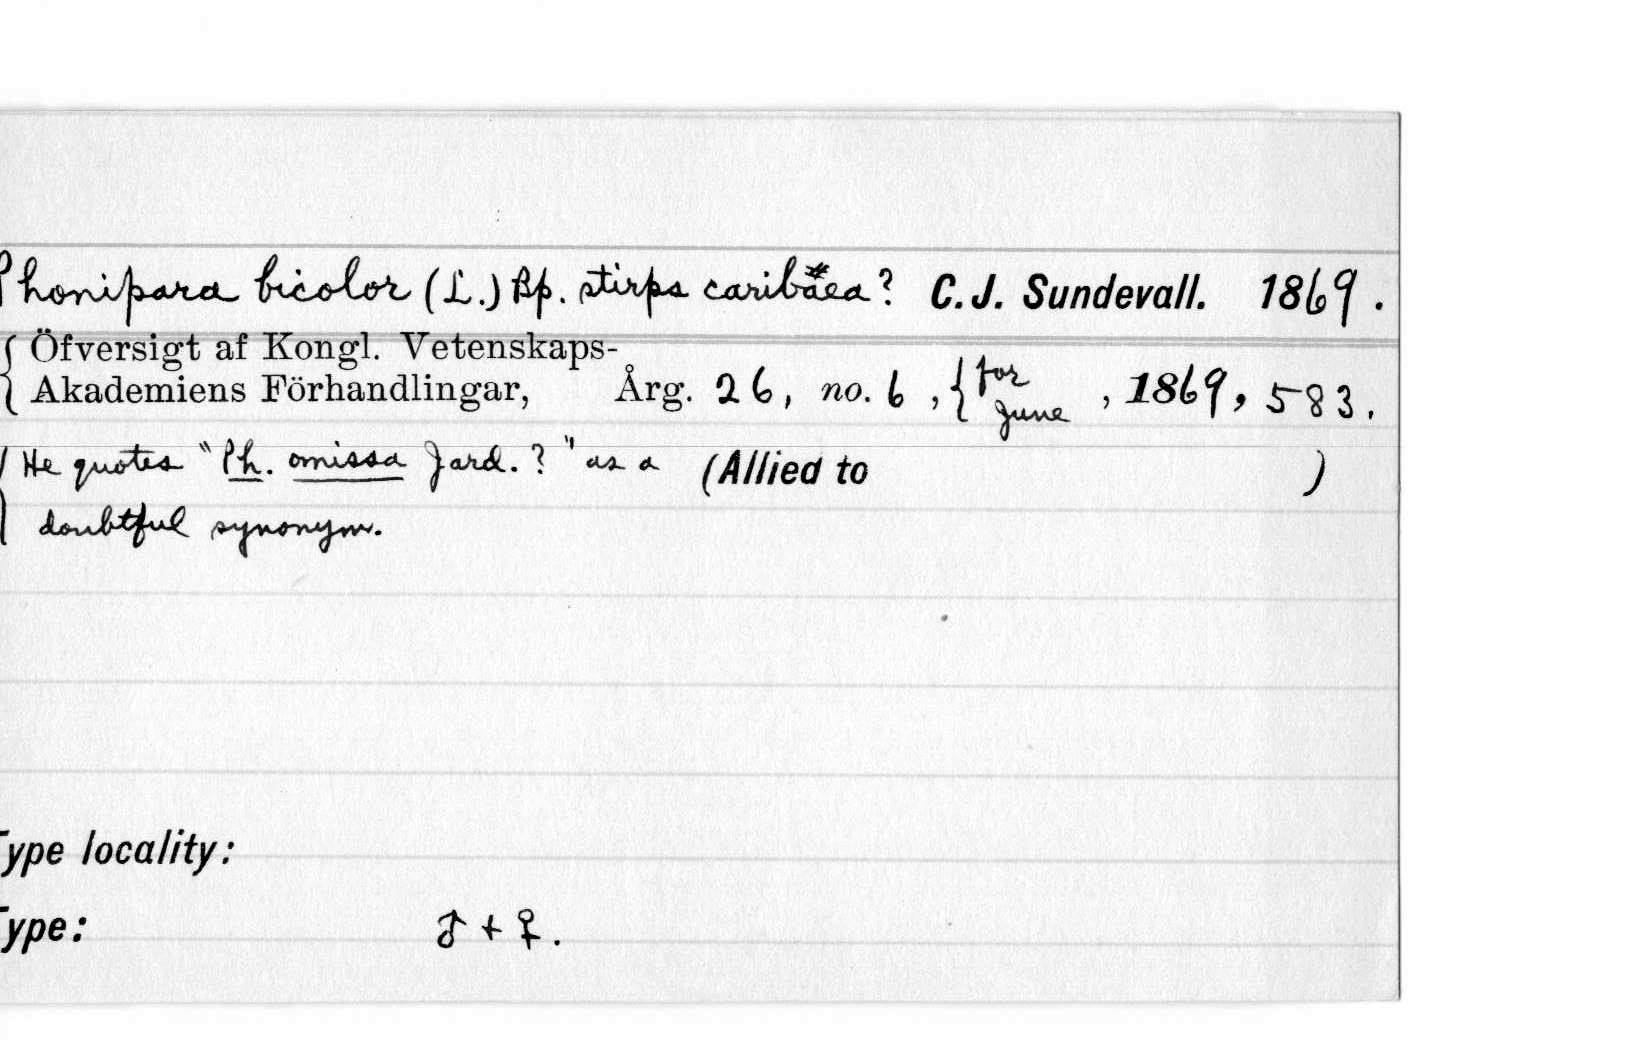 Phonipara bicolor (L.) Bp. stirps caribaea? C.J. Sundevall. 1869.
{ Öfversigt af Kongl. Vetenskaps-
Akademiens Förhandlingar, Årg. 26, no. 6, { for June, 1869, 583.
He quotes "Ph. omissa Jard.?" as a (Allied to )
doubtful synonym.
Type locality:
Type: ♂ + ♀.